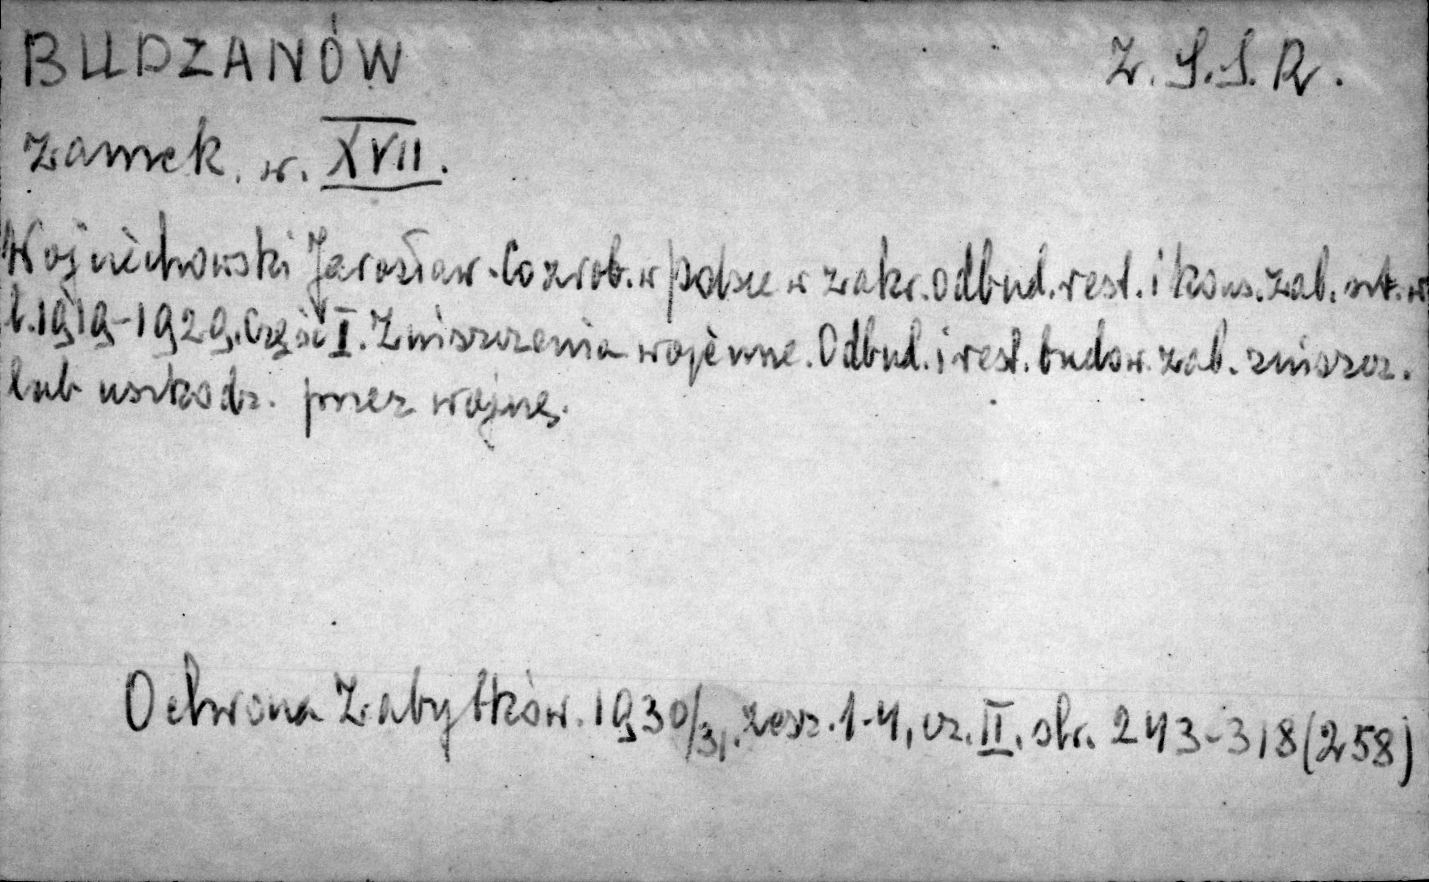 BUDZANÓW
Z.S.S.R.
zamek. w. XVII.
Wojciechowski Jarosław. Co zrob. w Polsce w zakr. odbud. rest. i kons. zab. szt. w
l. 1919-1929. Część I. Zniszczenia wojenne. Odbud. i rest. budow. zab. zniszcz.
lub uszkodz. przez wojnę.
Ochrona Zabytków. 1930/31. zesz. 1-4, cz. II. str. 243-318 (258)